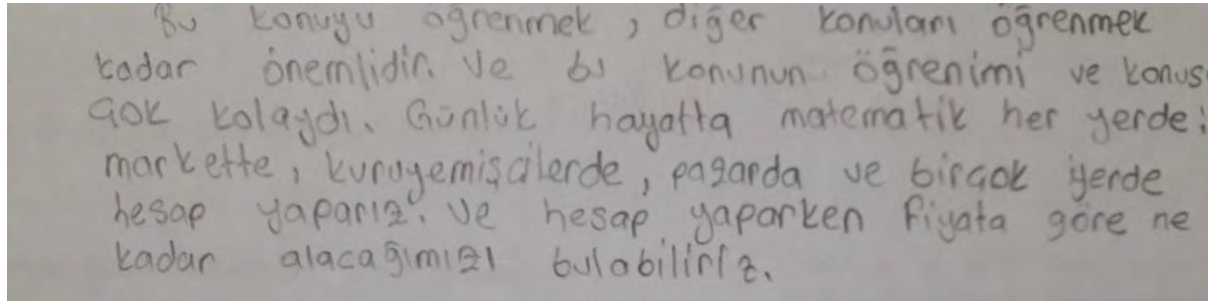 Bu konuyu öğrenmek, diğer konuları öğrenmek
kadar önemlidir. Ve bu konunun öğrenimi ve konus
çok kolaydı. Günlük hayatta matematik her yerde;
markette, kuruyemişcilerde, pazarda ve birçok yerde
hesap yaparız. Ve hesap yaparken fiyata göre ne
kadar alacağımızı bulabiliriz.